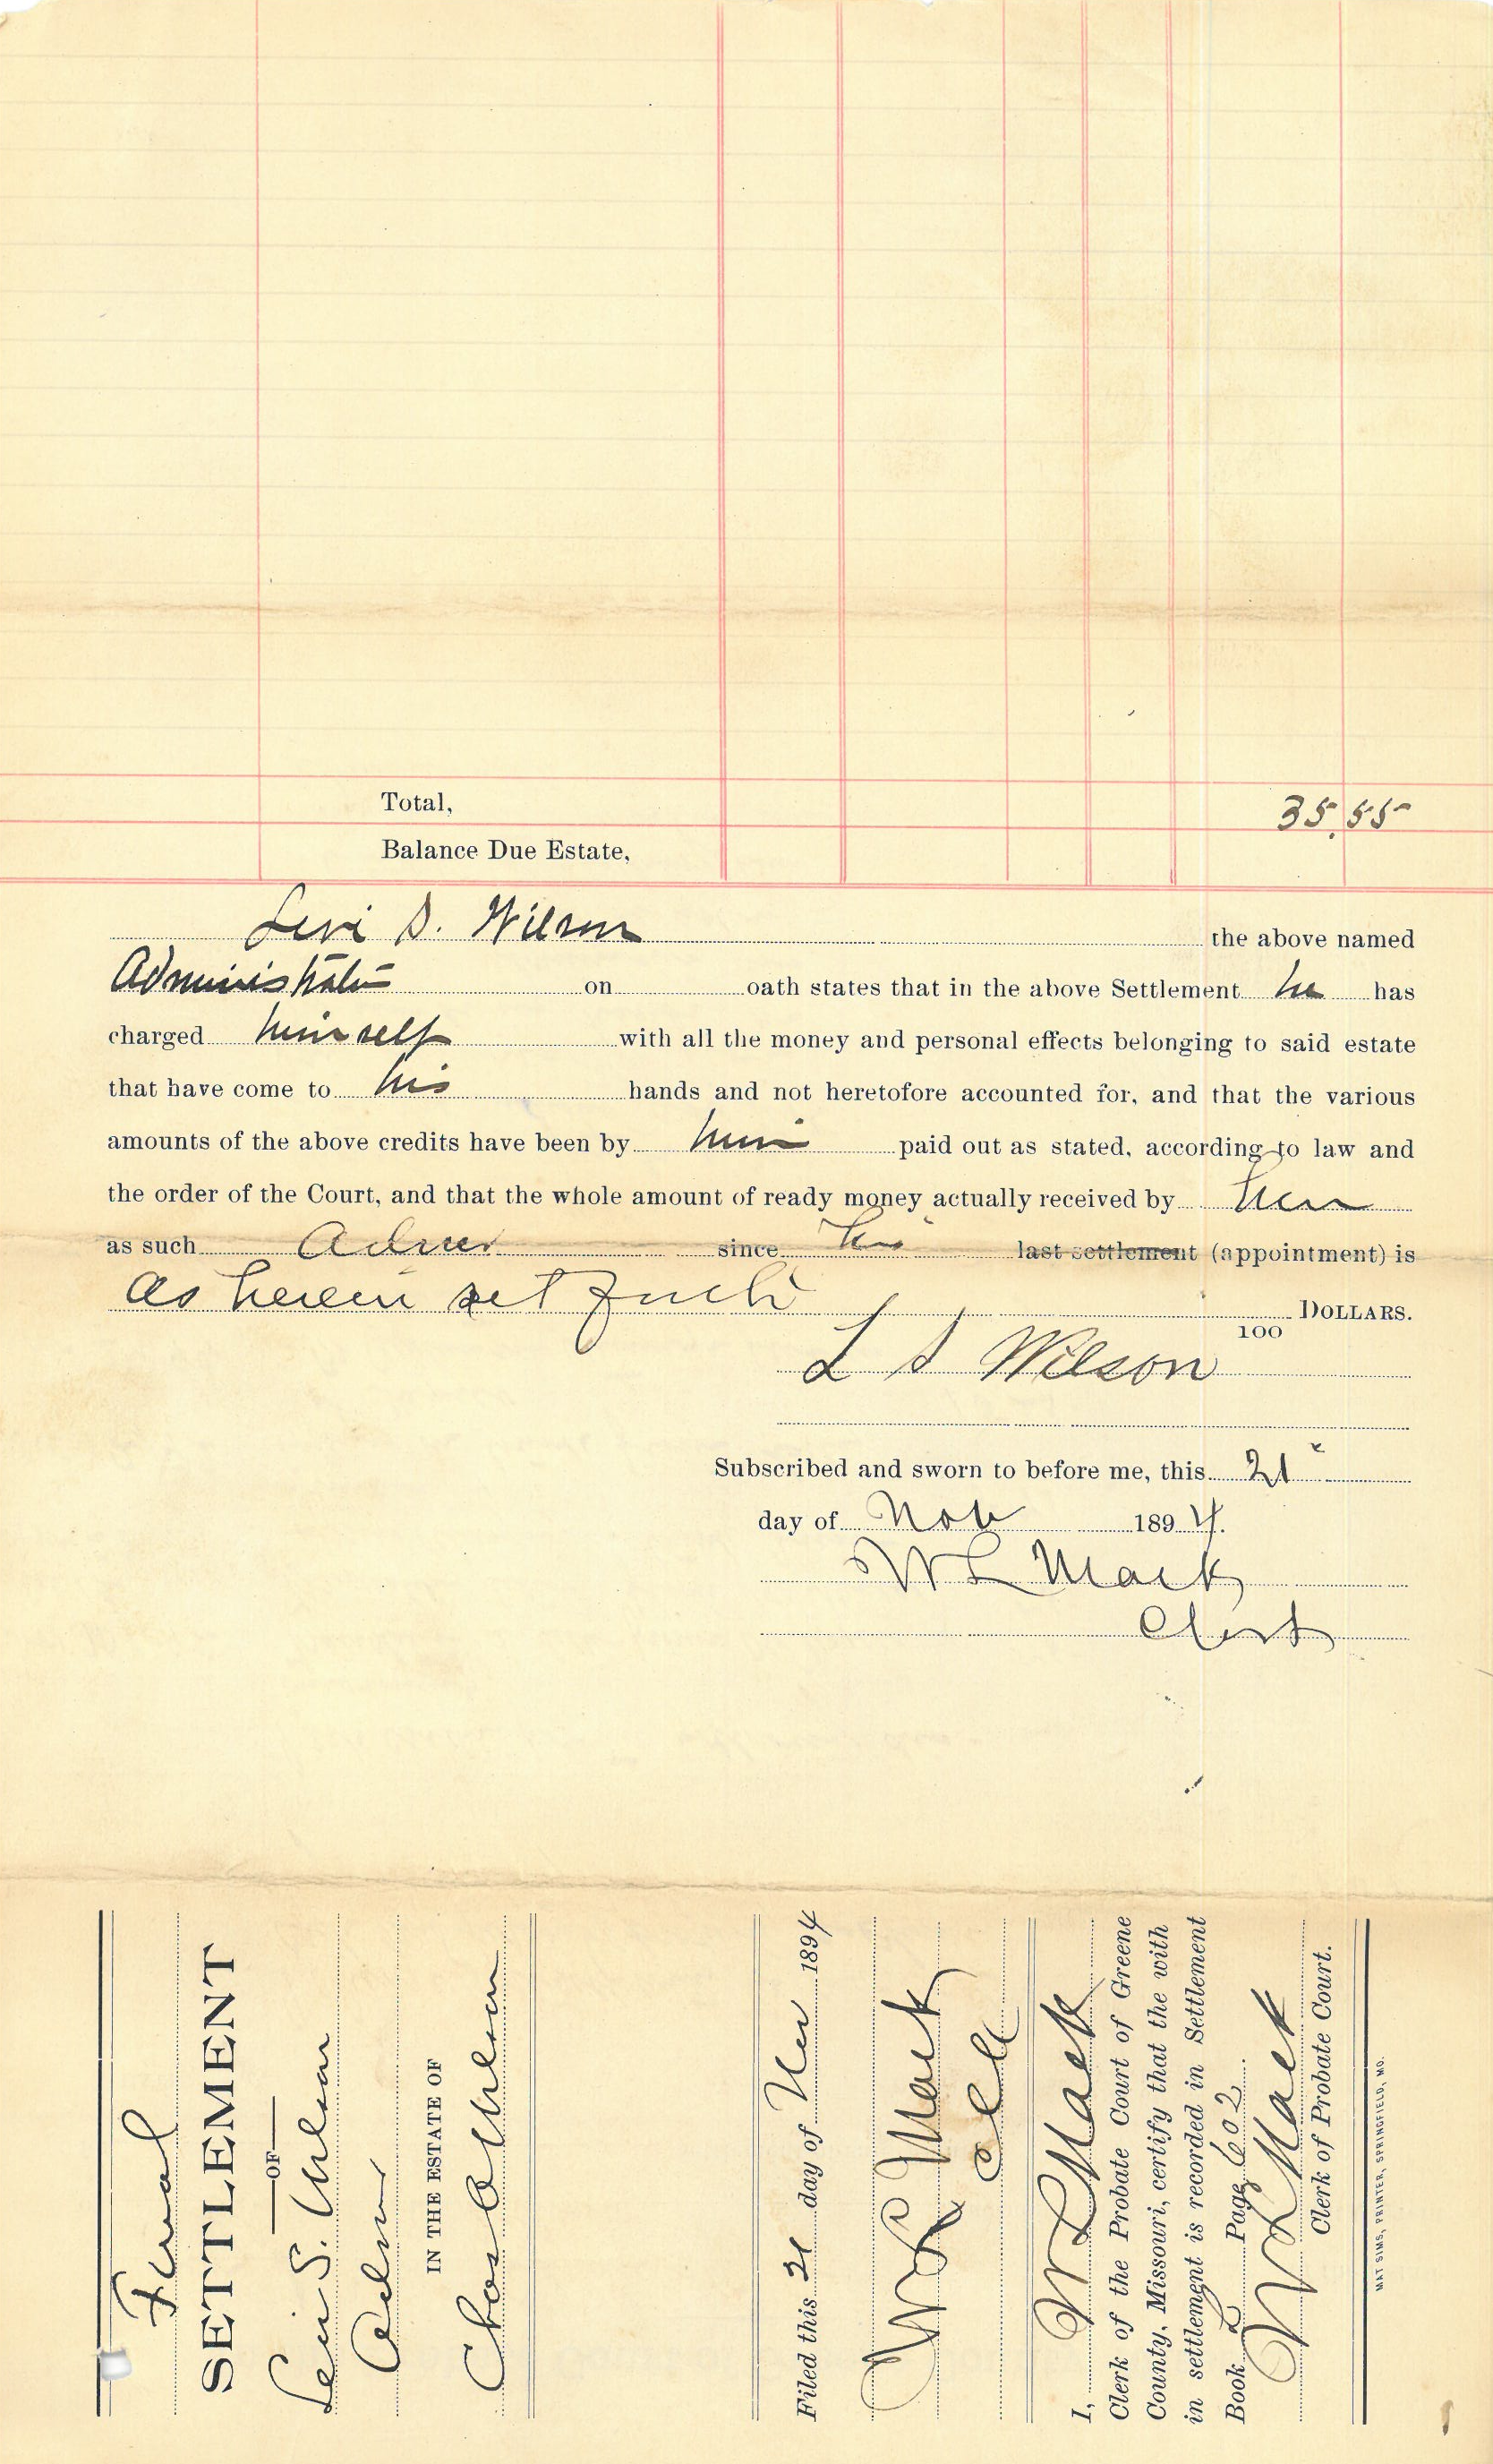 Total, 35.55
Balance Due Estate,
Levi S. Wilson the above named
Administrator on oath states that in the above Settlement he has
charged himself with all the money and personal effects belonging to said estate
that have come to his hands and not heretofore accounted for, and that the various
amounts of the above credits have been by him paid out as stated, according to law and
the order of the Court, and that the whole amount of ready money actually received by him
as such Admr since his last settlement (appointment) is
as herein set forth DOLLARS.
100
L S Wilson
Subscribed and sworn to before me, this 21
day of Nov 1894.
W L Mack
Clerk
Final
SETTLEMENT
OF
Levi S. Wilson
Admr
IN THE ESTATE OF
Chas A Wilson
Filed this 21 day of Nov 1894
W L Mack
Clk
I, W L Mack
Clerk of the Probate Court of Greene
County, Missouri, certify that the with
in settlement is recorded in Settlement
Book L Page 602
W L Mack
Clerk of Probate Court.
MAT SIMS, PRINTER, SPRINGFIELD, MO.